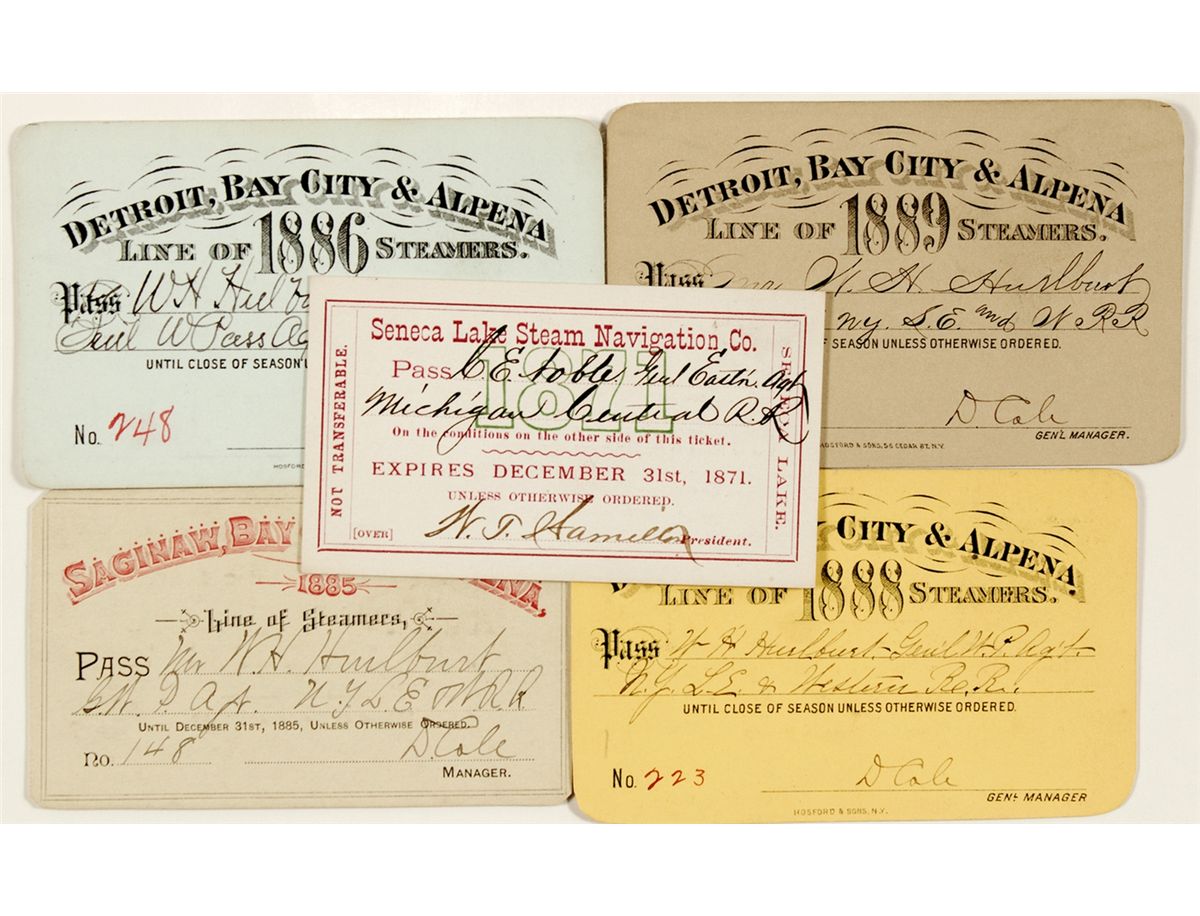 DETROIT, BAY CITY & ALPENA
LINE OF 1886 STEAMERS.
Pass W H
Genl W Pass Ag
UNTIL CLOSE OF SEASON
No. 248
HOSFORD
DETROIT, BAY CITY & ALPENA
LINE OF 1889 STEAMERS.
Pass W. H. Hurlburt
N.Y. L.E. and W R R
OF SEASON UNLESS OTHERWISE ORDERED.
D Cole
GEN'L MANAGER.
HOSFORD & SONS, 56 CEDAR ST. N.Y.
NOT TRANSFERABLE.
Seneca Lake Steam Navigation Co.
1871
Pass C E Noble Genl East'n Agt
Michigan Central R.R
On the conditions on the other side of this ticket.
EXPIRES DECEMBER 31st, 1871.
UNLESS OTHERWISE ORDERED.
[OVER] President.
SENECA LAKE.
SAGINAW, BAY
1885
Line of Steamers,
PASS Mr W. H. Hurlburt
N.Y L E & W R R
UNTIL DECEMBER 31ST, 1885, UNLESS OTHERWISE ORDERED.
No. 148 D. Cole
MANAGER.
CITY & ALPENA
LINE OF 1888 STEAMERS.
Pass W H Hurlburt Genl W. P. Agt.
N.Y. L.E. & Western R.R.
UNTIL CLOSE OF SEASON UNLESS OTHERWISE ORDERED.
No. 223 D Cole
GEN'L MANAGER
HOSFORD & SONS, N.Y.